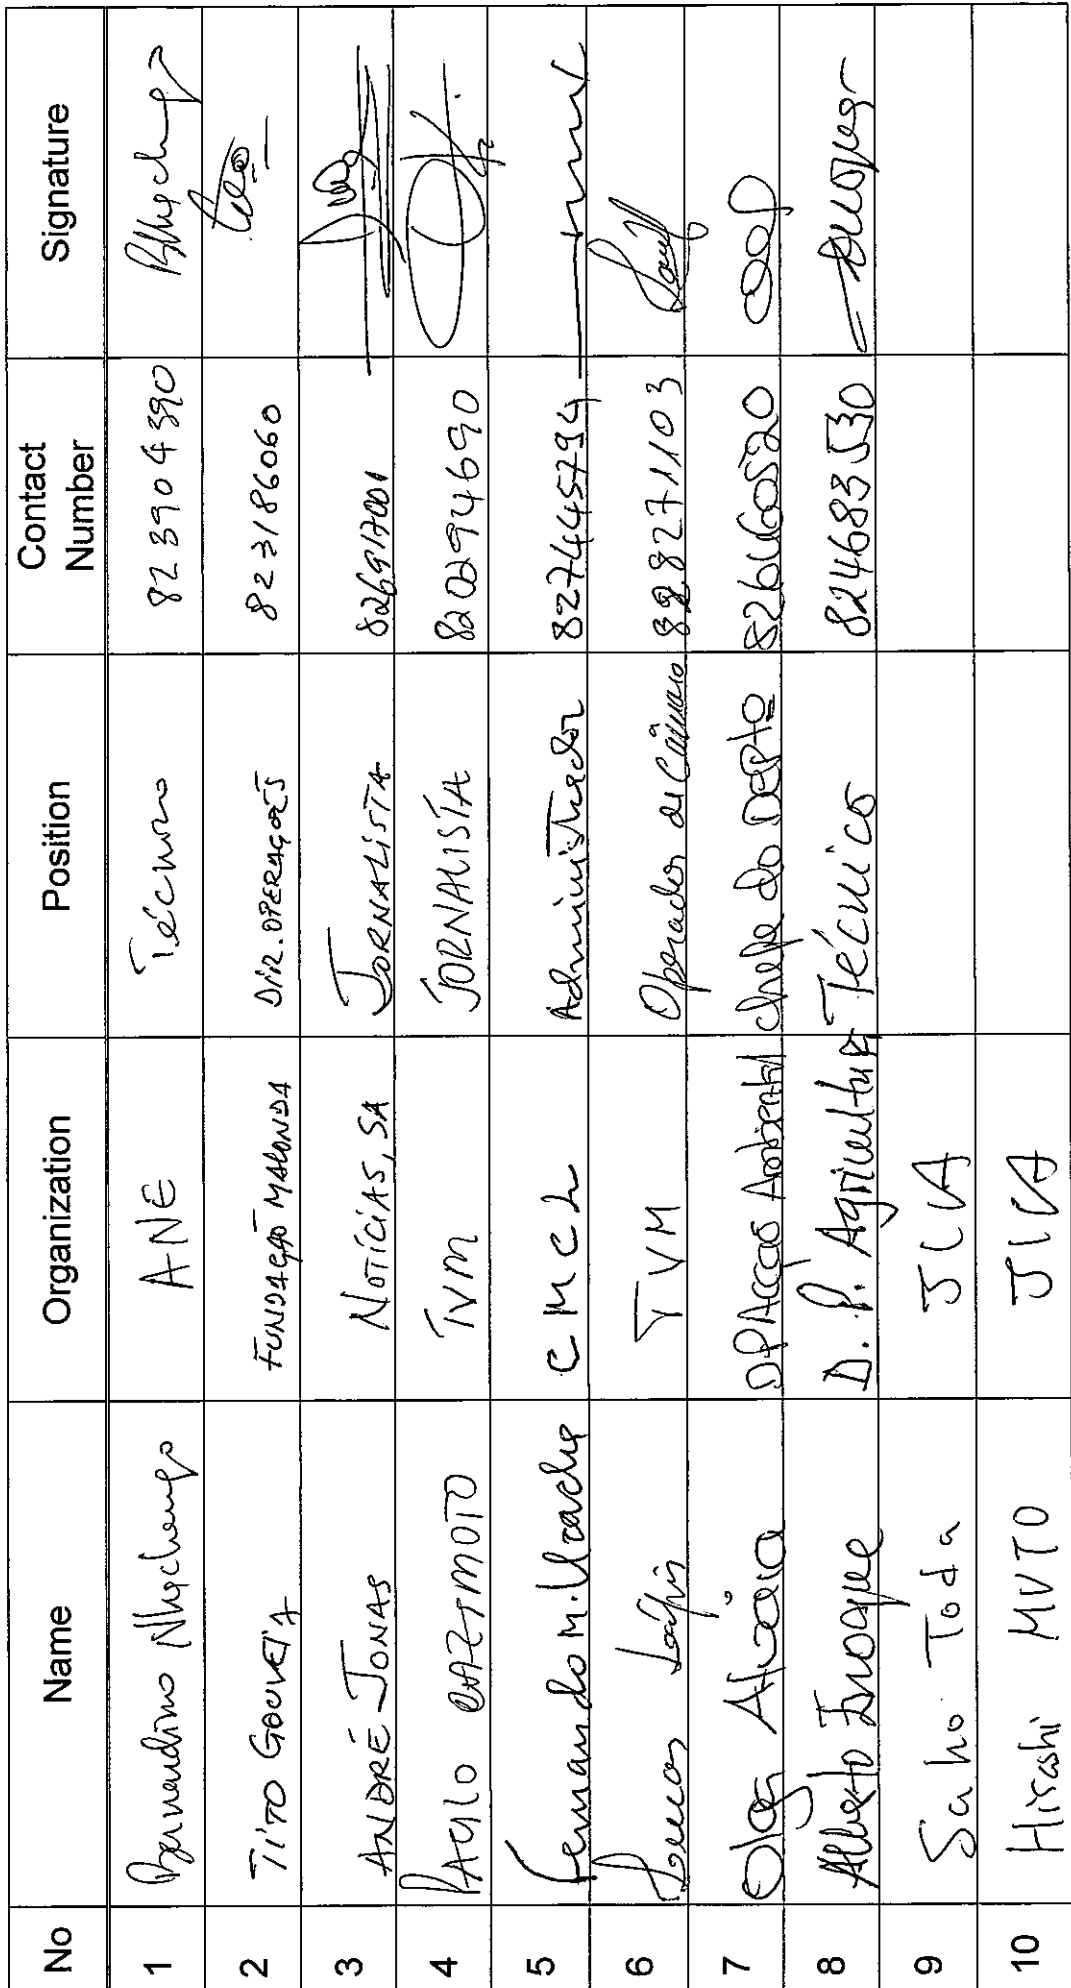 No Name Organization Position Contact Number Signature
1 Bernardino Nhachengo ANE Técnico 823904390
2 TITO GOUVEIA FUNDAÇÃO MALONDA DIR. OPERAÇÕES 823186060
3 ANDRÉ JONAS NOTÍCIAS, SA JORNALISTA 826917001
4 PAULO CAZIMOTO TVM JORNALISTA 820294690
5 Fernando M. CMCL Administrador
6 Lucas TVM Operador de Câmara 828271103
7 Olga DPAcção Ambiental chefe do Depto 826460520
8 Alberto Inoque D. P. Agricultura Técnico 824683530
9 Saho Toda JICA
10 Hisashi MUTO JICA